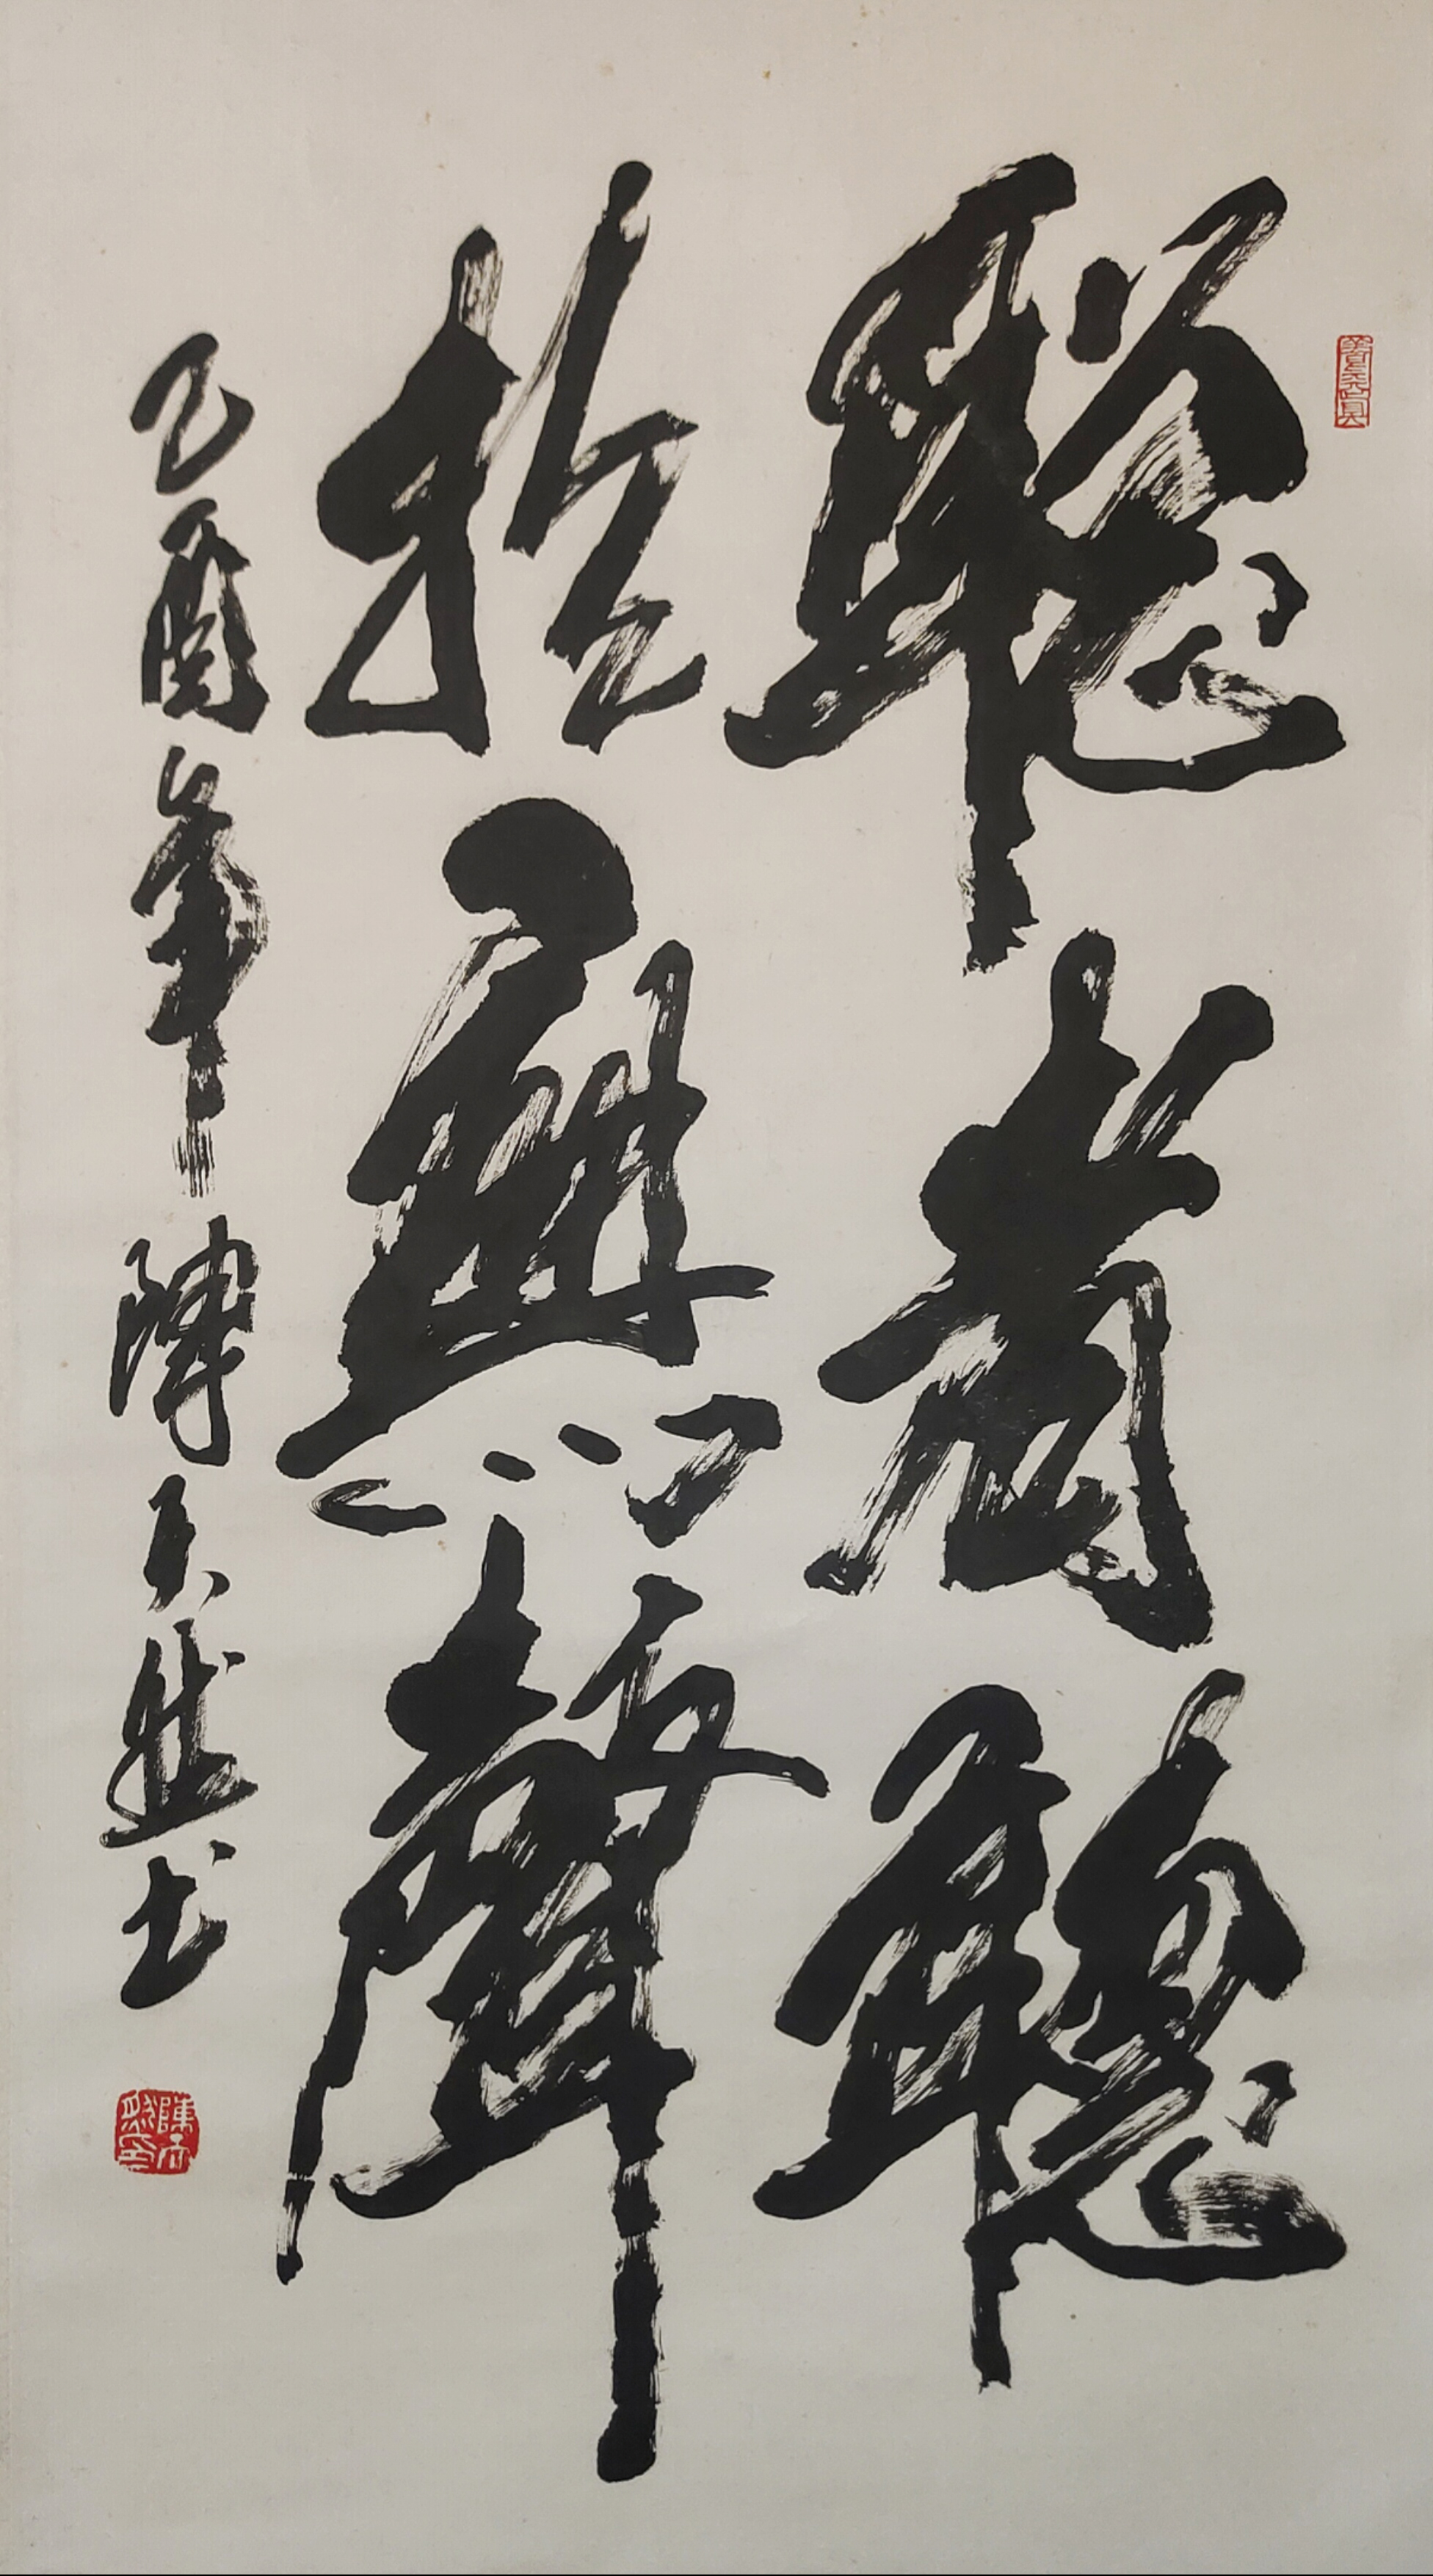 聰者聽
於無聲
乙酉年陳天然書